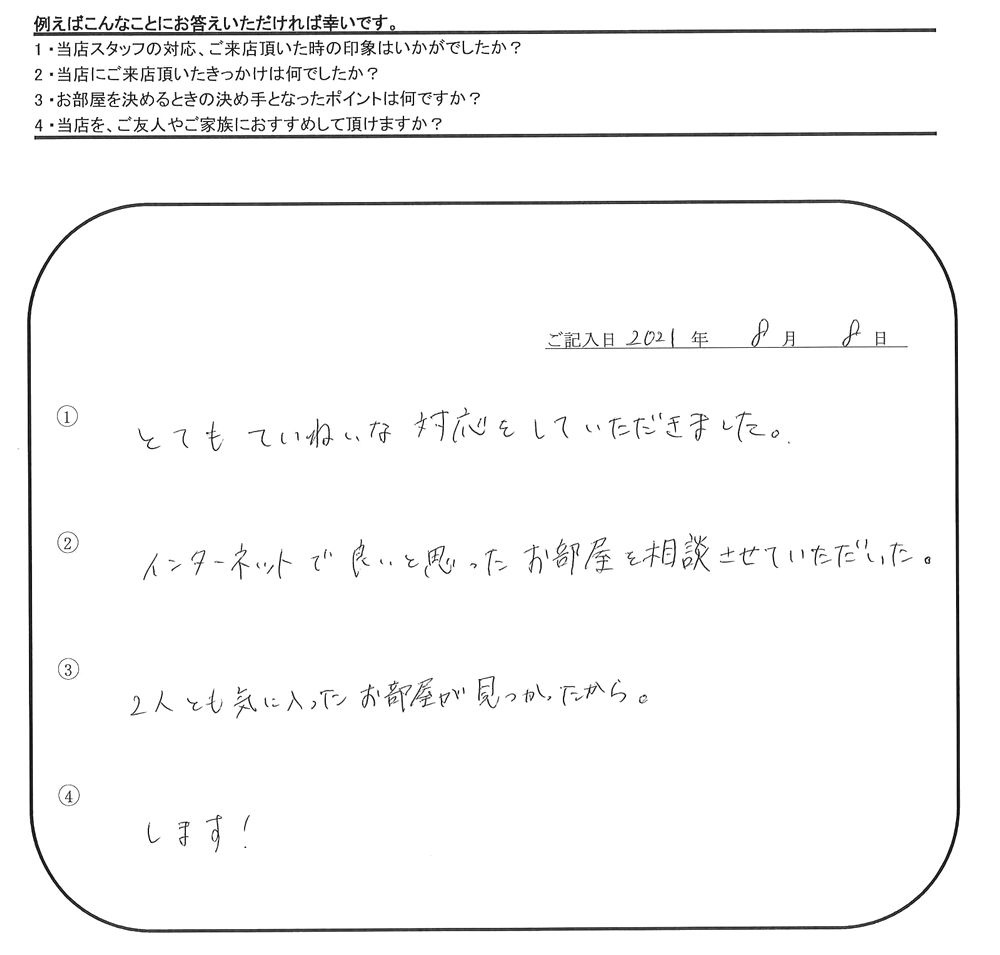 例えばこんなことにお答えいただければ幸いです。
1・当店スタッフの対応、ご来店頂いた時の印象はいかがでしたか？
2・当店にご来店頂いたきっかけは何でしたか？
3・お部屋を決めるときの決め手となったポイントは何ですか？
4・当店を、ご友人やご家族におすすめして頂けますか？
ご記入日 2021 年 8 月 8 日
① とても ていねいな 対応をしていただきました。
② インターネットで良いと思ったお部屋を相談させていただいた。
③ 2人とも気に入ったお部屋が見つかったから。
④ します！